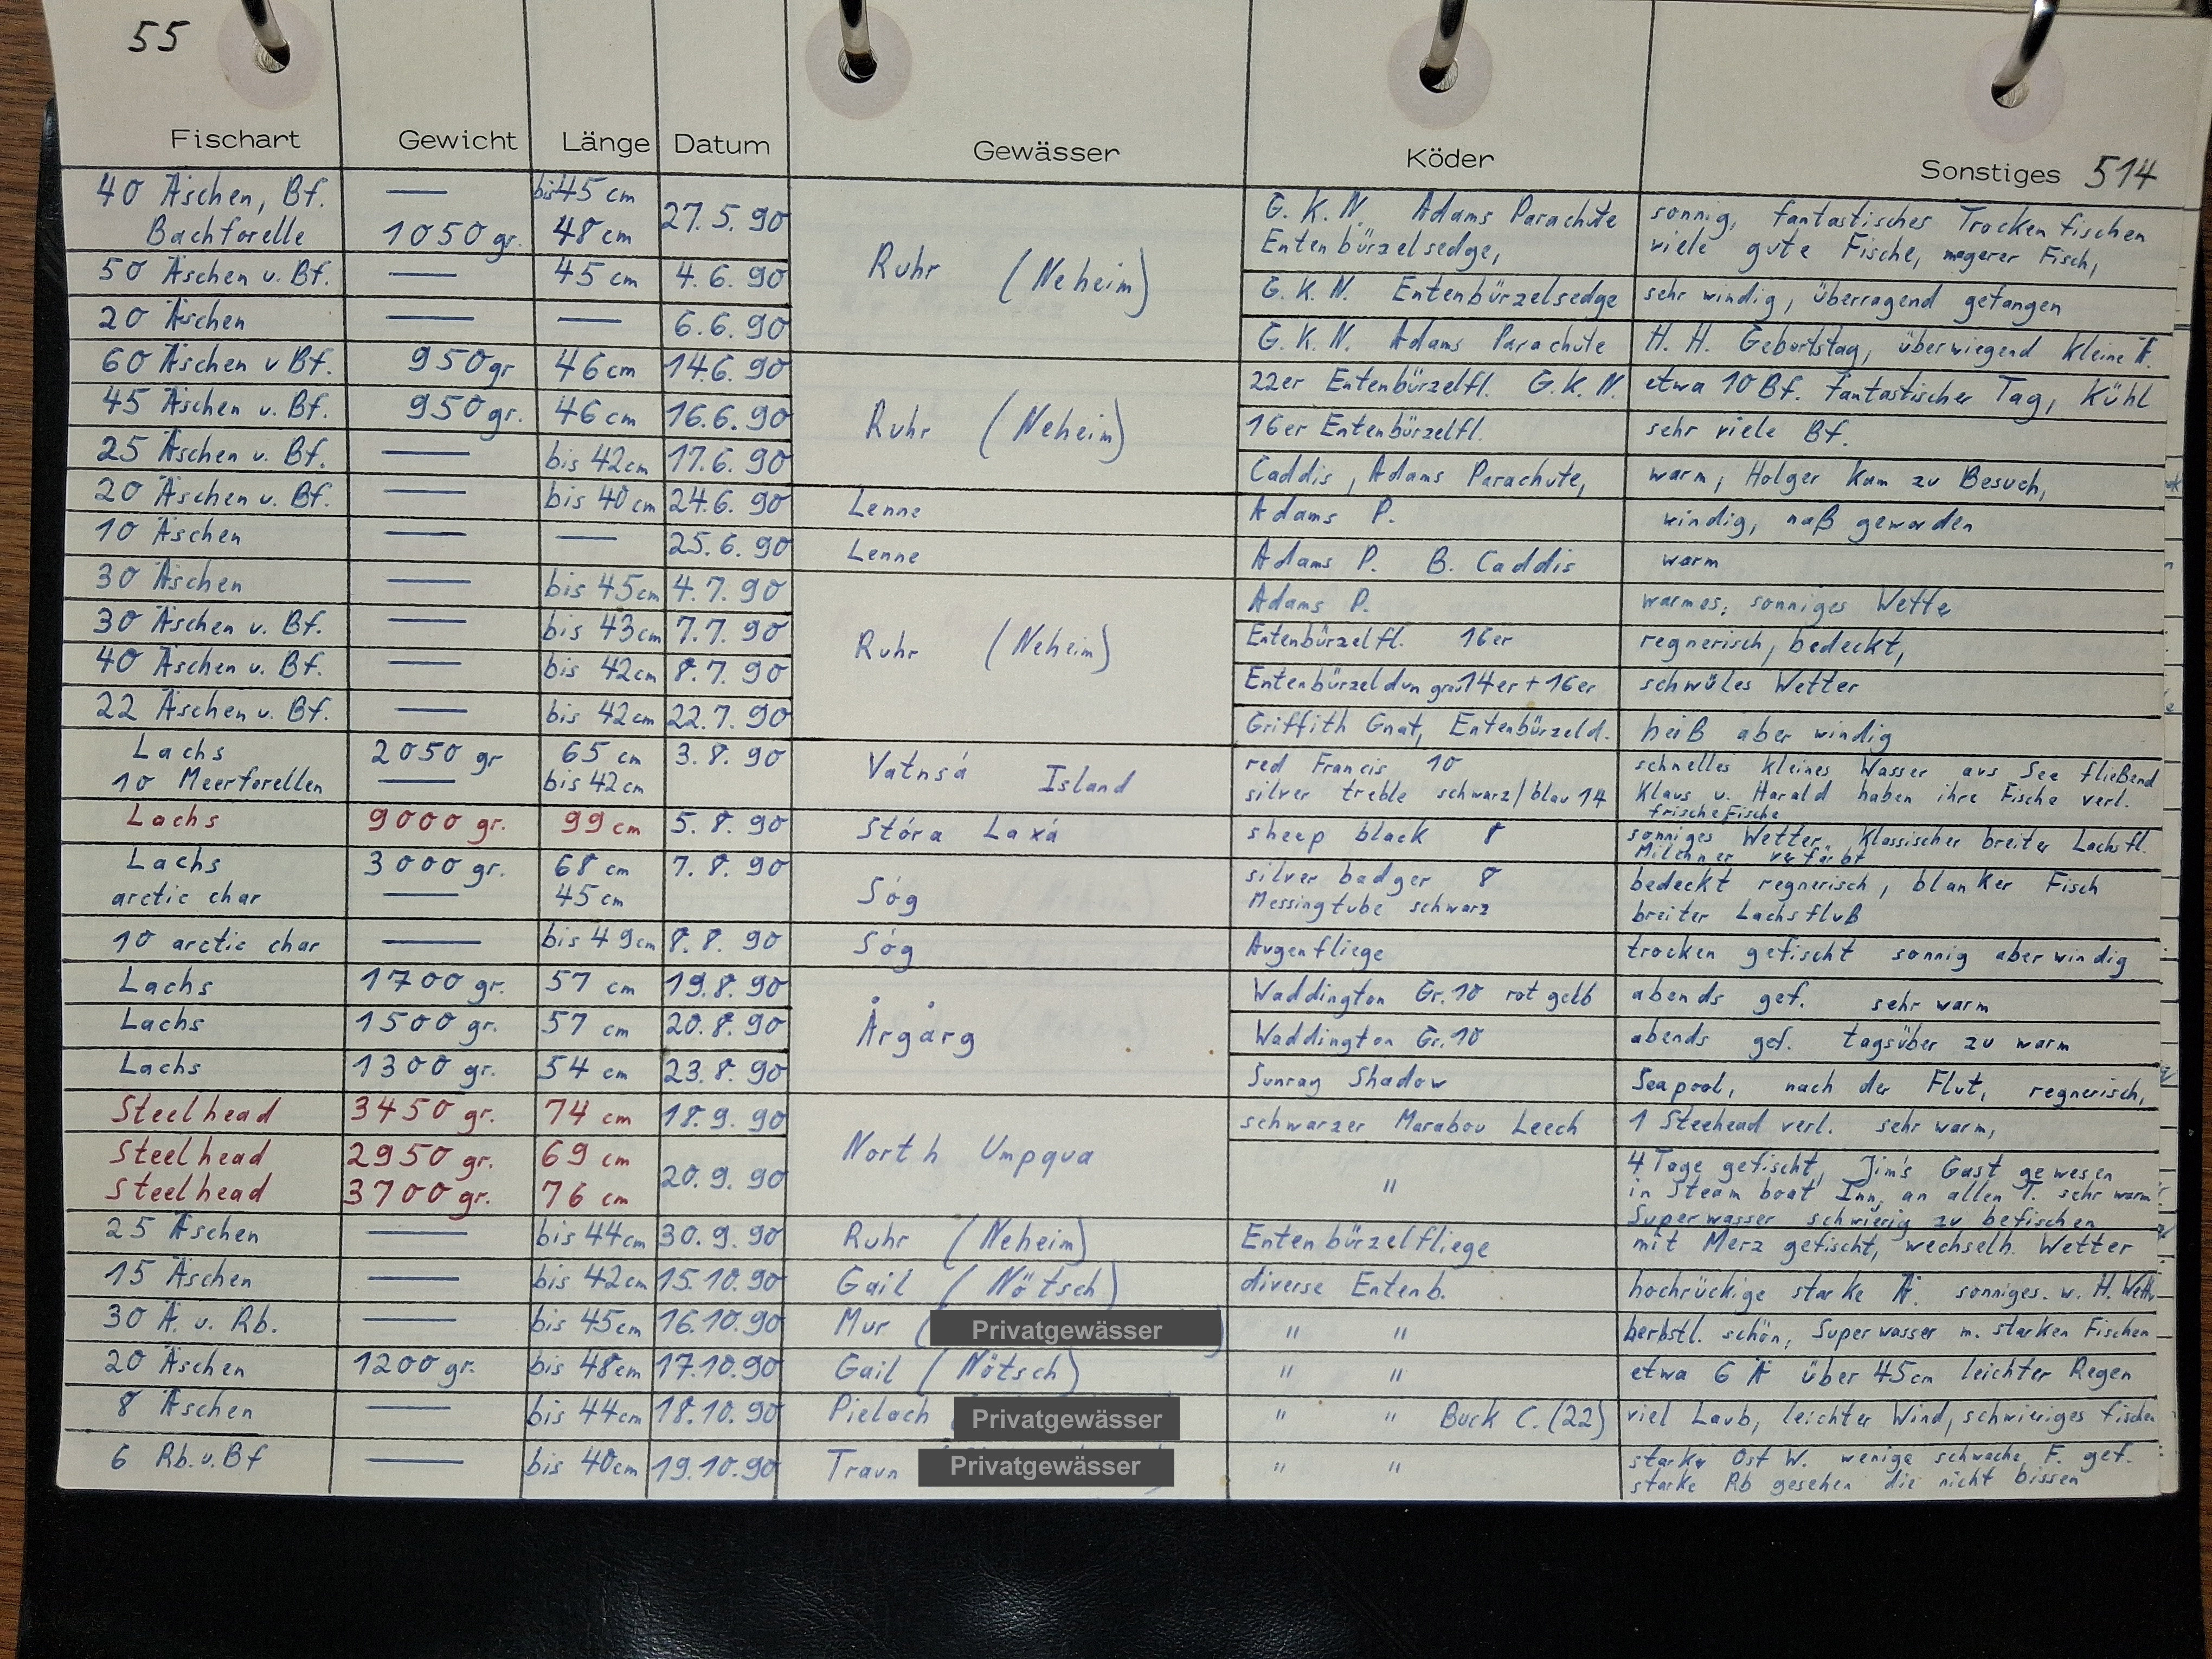 55
Fischart Gewicht Länge Datum Gewässer Köder Sonstiges 514
40 Äschen, Bf. — bis 45 cm 27.5.90 Ruhr (Neheim) G.K.N. Adams Parachute sonnig, fantastisches Trockenfischen
Bachforelle 1050 gr. 48 cm Entenbürzelsedge, viele gute Fische, magerer Fisch,
50 Äschen u. Bf. — 45 cm 4.6.90 G.K.N. Entenbürzelsedge sehr windig, überragend gefangen
20 Äschen — — 6.6.90 G.K.N. Adams Parachute H.H. Geburtstag, überwiegend kleine Ä.
60 Äschen v Bf. 950 gr 46 cm 14.6.90 Ruhr (Neheim) 22er Entenbürzelfl. G.K.N. etwa 10 Bf. fantastischer Tag, Kühl
45 Äschen u. Bf. 950 gr. 46 cm 16.6.90 16er Entenbürzelfl. sehr viele Bf.
25 Äschen u. Bf. — bis 42 cm 17.6.90 Caddis, Adams Parachute, warm, Holger kam zu Besuch,
20 Äschen u. Bf. — bis 40 cm 24.6.90 Lenne Adams P. windig, naß geworden
10 Äschen — — 25.6.90 Lenne Adams P. B. Caddis warm
30 Äschen — bis 45 cm 4.7.90 Ruhr (Neheim) Adams P. warmes, sonniges Wetter
30 Äschen v. Bf. — bis 43 cm 7.7.90 Entenbürzelfl. 16er regnerisch, bedeckt,
40 Äschen u. Bf. — bis 42 cm 8.7.90 Entenbürzeldun grau 14er + 16er schwüles Wetter
22 Äschen u. Bf. — bis 42 cm 22.7.90 Griffith Gnat, Entenbürzeld. heiß aber windig
Lachs 2050 gr 65 cm 3.8.90 Vatnsá Island red Francis 10 schnelles kleines Wasser aus See fließend
10 Meerforellen — bis 42 cm silver treble schwarz/blau 14 Klaus u. Harald haben ihre Fische verl.
frische Fische
Lachs 9000 gr. 99 cm 5.8.90 Stóra Laxá sheep black 8 sonniges Wetter, Klassischer breiter Lachsfl.
Milchner verfärbt
Lachs 3000 gr. 68 cm 7.8.90 Sóg silver badger 8 bedeckt regnerisch, blanker Fisch
arctic char — 45 cm Messingtube schwarz breiter Lachsfluß
10 arctic char — bis 49 cm 8.8.90 Sóg Augenfliege trocken gefischt sonnig aber windig
Lachs 1700 gr. 57 cm 19.8.90 Årgårg Waddington Gr. 10 rot gelb abends gef. sehr warm
Lachs 1500 gr. 57 cm 20.8.90 Waddington Gr. 10 abends gef. tagsüber zu warm
Lachs 1300 gr. 54 cm 23.8.90 Sunray Shadow Seapool, nach der Flut, regnerisch,
Steelhead 3450 gr. 74 cm 18.9.90 North Umpqua schwarzer Marabou Leech 1 Steehead verl. sehr warm,
Steelhead 2950 gr. 69 cm 20.9.90 " 4 Tage gefischt, Jim's Gast gewesen
Steelhead 3700 gr. 76 cm in Steam boat Inn, an allen T. sehr warm
Superwasser schwierig zu befischen
25 Äschen — bis 44 cm 30.9.90 Ruhr (Neheim) Entenbürzelfliege mit Merz gefischt, wechselh. Wetter
15 Äschen — bis 42 cm 15.10.90 Gail (Nötsch) diverse Entenb. hochrückige starke Ä. sonniges. w. H. Wett
30 Ä. u. Rb. — bis 45 cm 16.10.90 Mur (Privatgewässer) " " herbstl. schön, Superwasser m. starken Fischen
20 Äschen 1200 gr. bis 48 cm 17.10.90 Gail (Nötsch) " " etwa 6 Ä über 45 cm leichter Regen
8 Äschen — bis 44 cm 18.10.90 Pielach Privatgewässer " " Buck C. (22) viel Laub, leichter Wind, schwieriges fischen
6 Rb. u. Bf — bis 40 cm 19.10.90 Traun Privatgewässer " " starker Ost W. wenige schwache F. gef.
starke Rb gesehen die nicht bissen